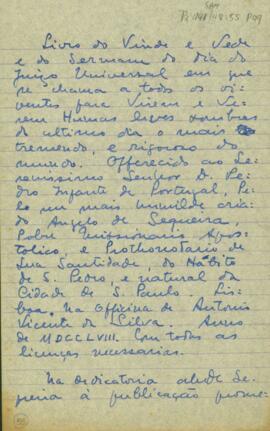 Livro do Vinde e Vede
e do Sermam do dia do
Juizo Universal em que
se chama a todos os vi-
ventes para Virem e Ve-
rem Humas leves sombras
do ultimo dia o mais
tremendo, e rigoroso do
mundo. Offerecido ao Se-
renissimo Senhor D. Pe-
dro Infante de Portugal, Pe-
lo um mais humilde cria-
do Angelo de Sequeira,
Pobre Missionario Apos-
tolico, e Prothonotario de
Sua Santidade, do Habito
de S. Pedro, e natural da
Cidade de S. Paulo. Lis-
boa. Na Officina de Antonio
Vicente da Silva. Anno
de MDCCLVIII. Com todas as
licenças necessarias.
Na dedicatoria alude Se-
queira à publicação prome-